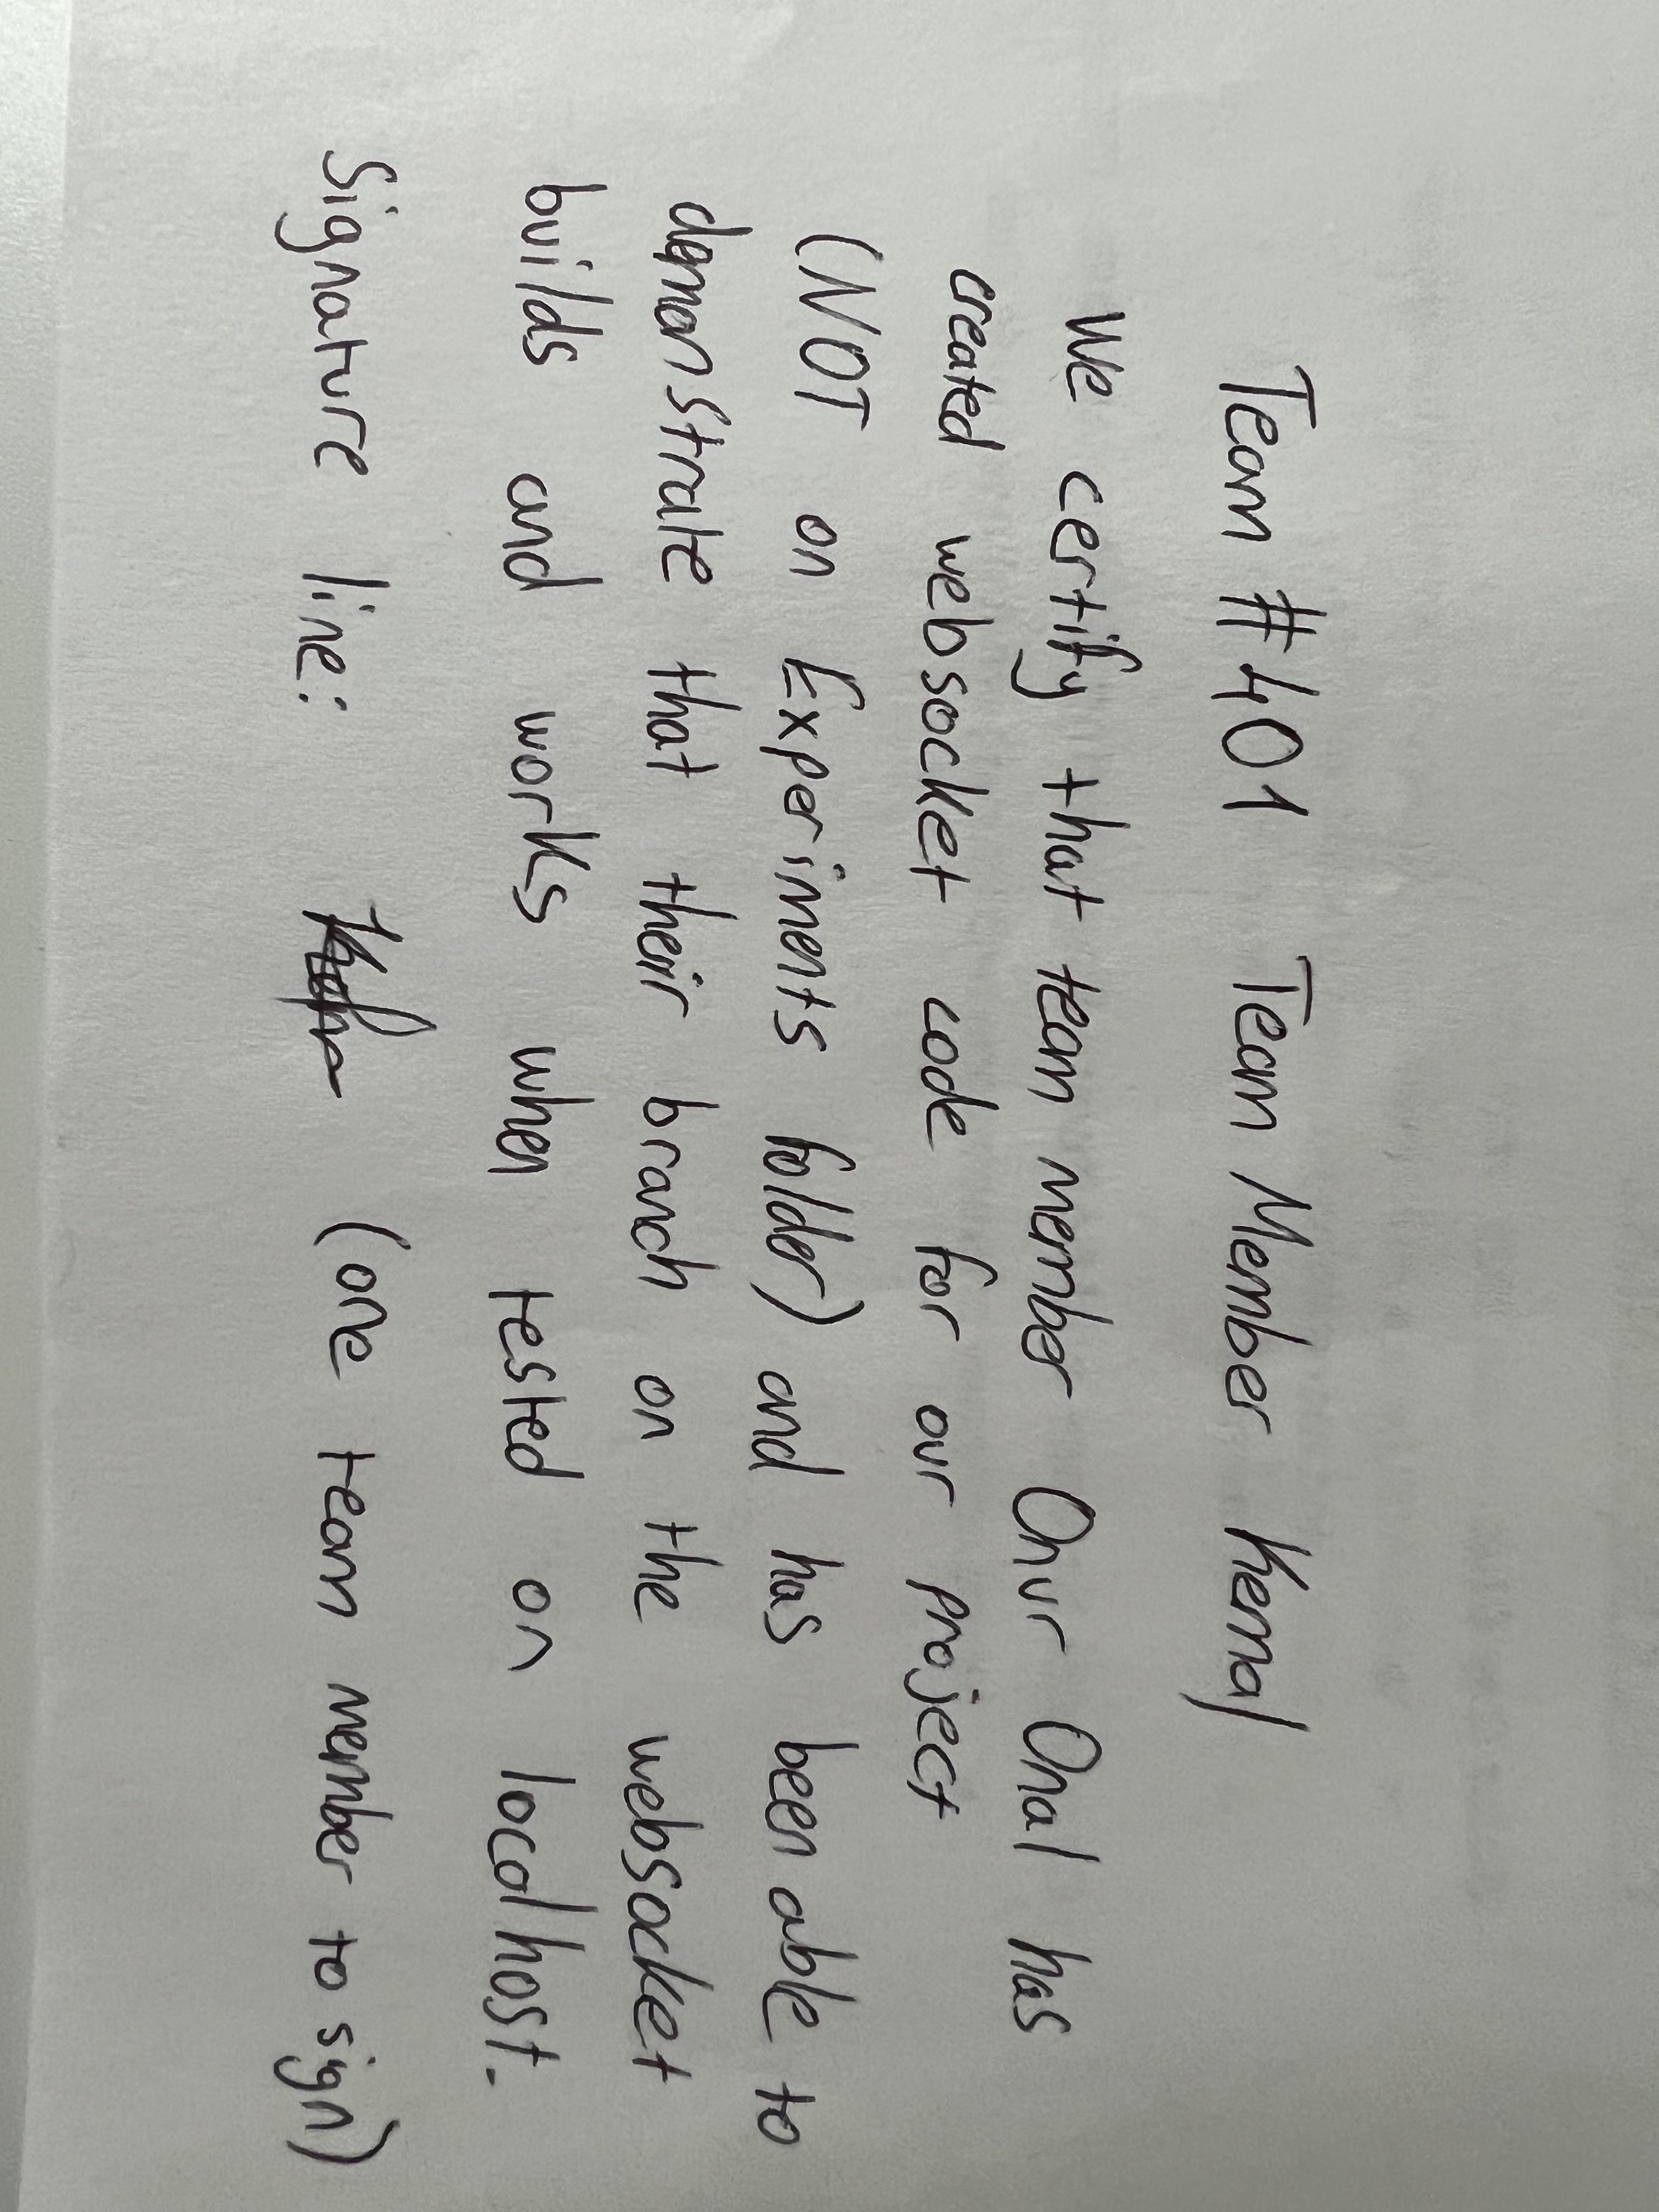 Team #401 Team Member Kemal
We certify that team member Onur Onal has
created websocket code for our project
(NOT on Experiments folder) and has been able to
demonstrate that their branch on the websocket
builds and works when tested on localhost.
Signature line: (one team member to sign)